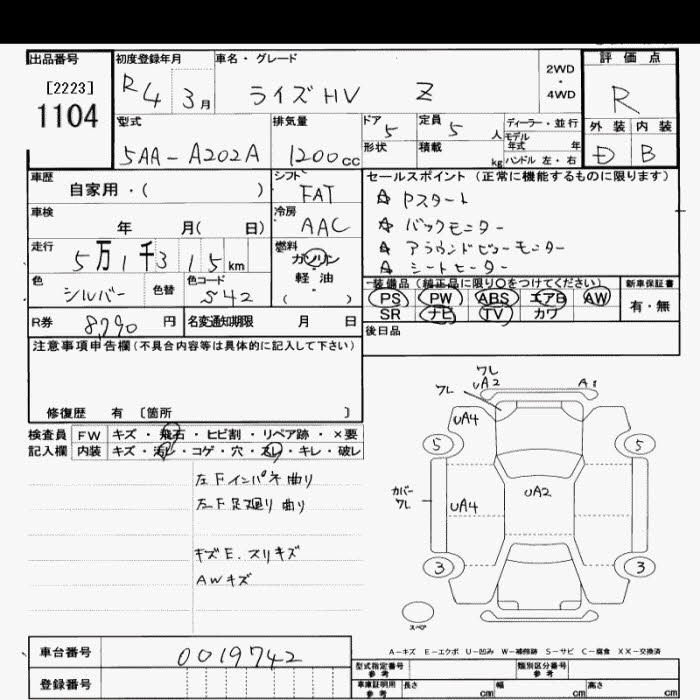 出品番号
[2223]
1104
初度登録年月
R4 3月
車名・グレード
ライズHV Z
2WD
・
4WD
評価点
R
外装 内装
D B
型式
5AA-A202A
排気量
1200cc
ドア
5
定員
5人
形状
積載
kg
ディーラー・並行
モデル
年式 年
ハンドル 左・右
車歴
自家用・( )
シフト
FAT
車検
年 月( 日)
冷房
AAC
走行
5万1千315km
燃料
ガソリン
・
軽油
( )
色
シルバー
色替
色コード
S42
R券
8,790円
名変通知期限 月 日
セールスポイント(正常に機能するものに限ります)
☆ Pスタート
☆ バックモニター
☆ アラウンドビューモニター
☆ シートヒーター
装備品(純正品に限り○をつけてください)
PS PW ABS エアB AW
SR ナビ TV カワ
新車保証書
有・無
後日品
注意事項申告欄(不具合内容等は具体的に記入して下さい)
修復歴 有〔箇所 〕
検査員
記入欄
FW キズ・飛石・ヒビ割・リペア跡・×要
内装 キズ・汚レ・コゲ・穴・スレ・キレ・破レ
左Fインパネ曲り
左F足廻り曲り
キズE.スリキズ
AWキズ
ワレ
UA2
A1
ワレ
UA4
5
5
カバー
ワレ
UA4
UA2
3
3
スペア
A-キズ E-エクボ U-凹み W-補修跡 S-サビ C-腐食 XX-交換済
車台番号
0019742
登録番号
型式指定番号
参考
類別区分番号
参考
車庫証明用
参考
長さ cm
幅 cm
高さ cm